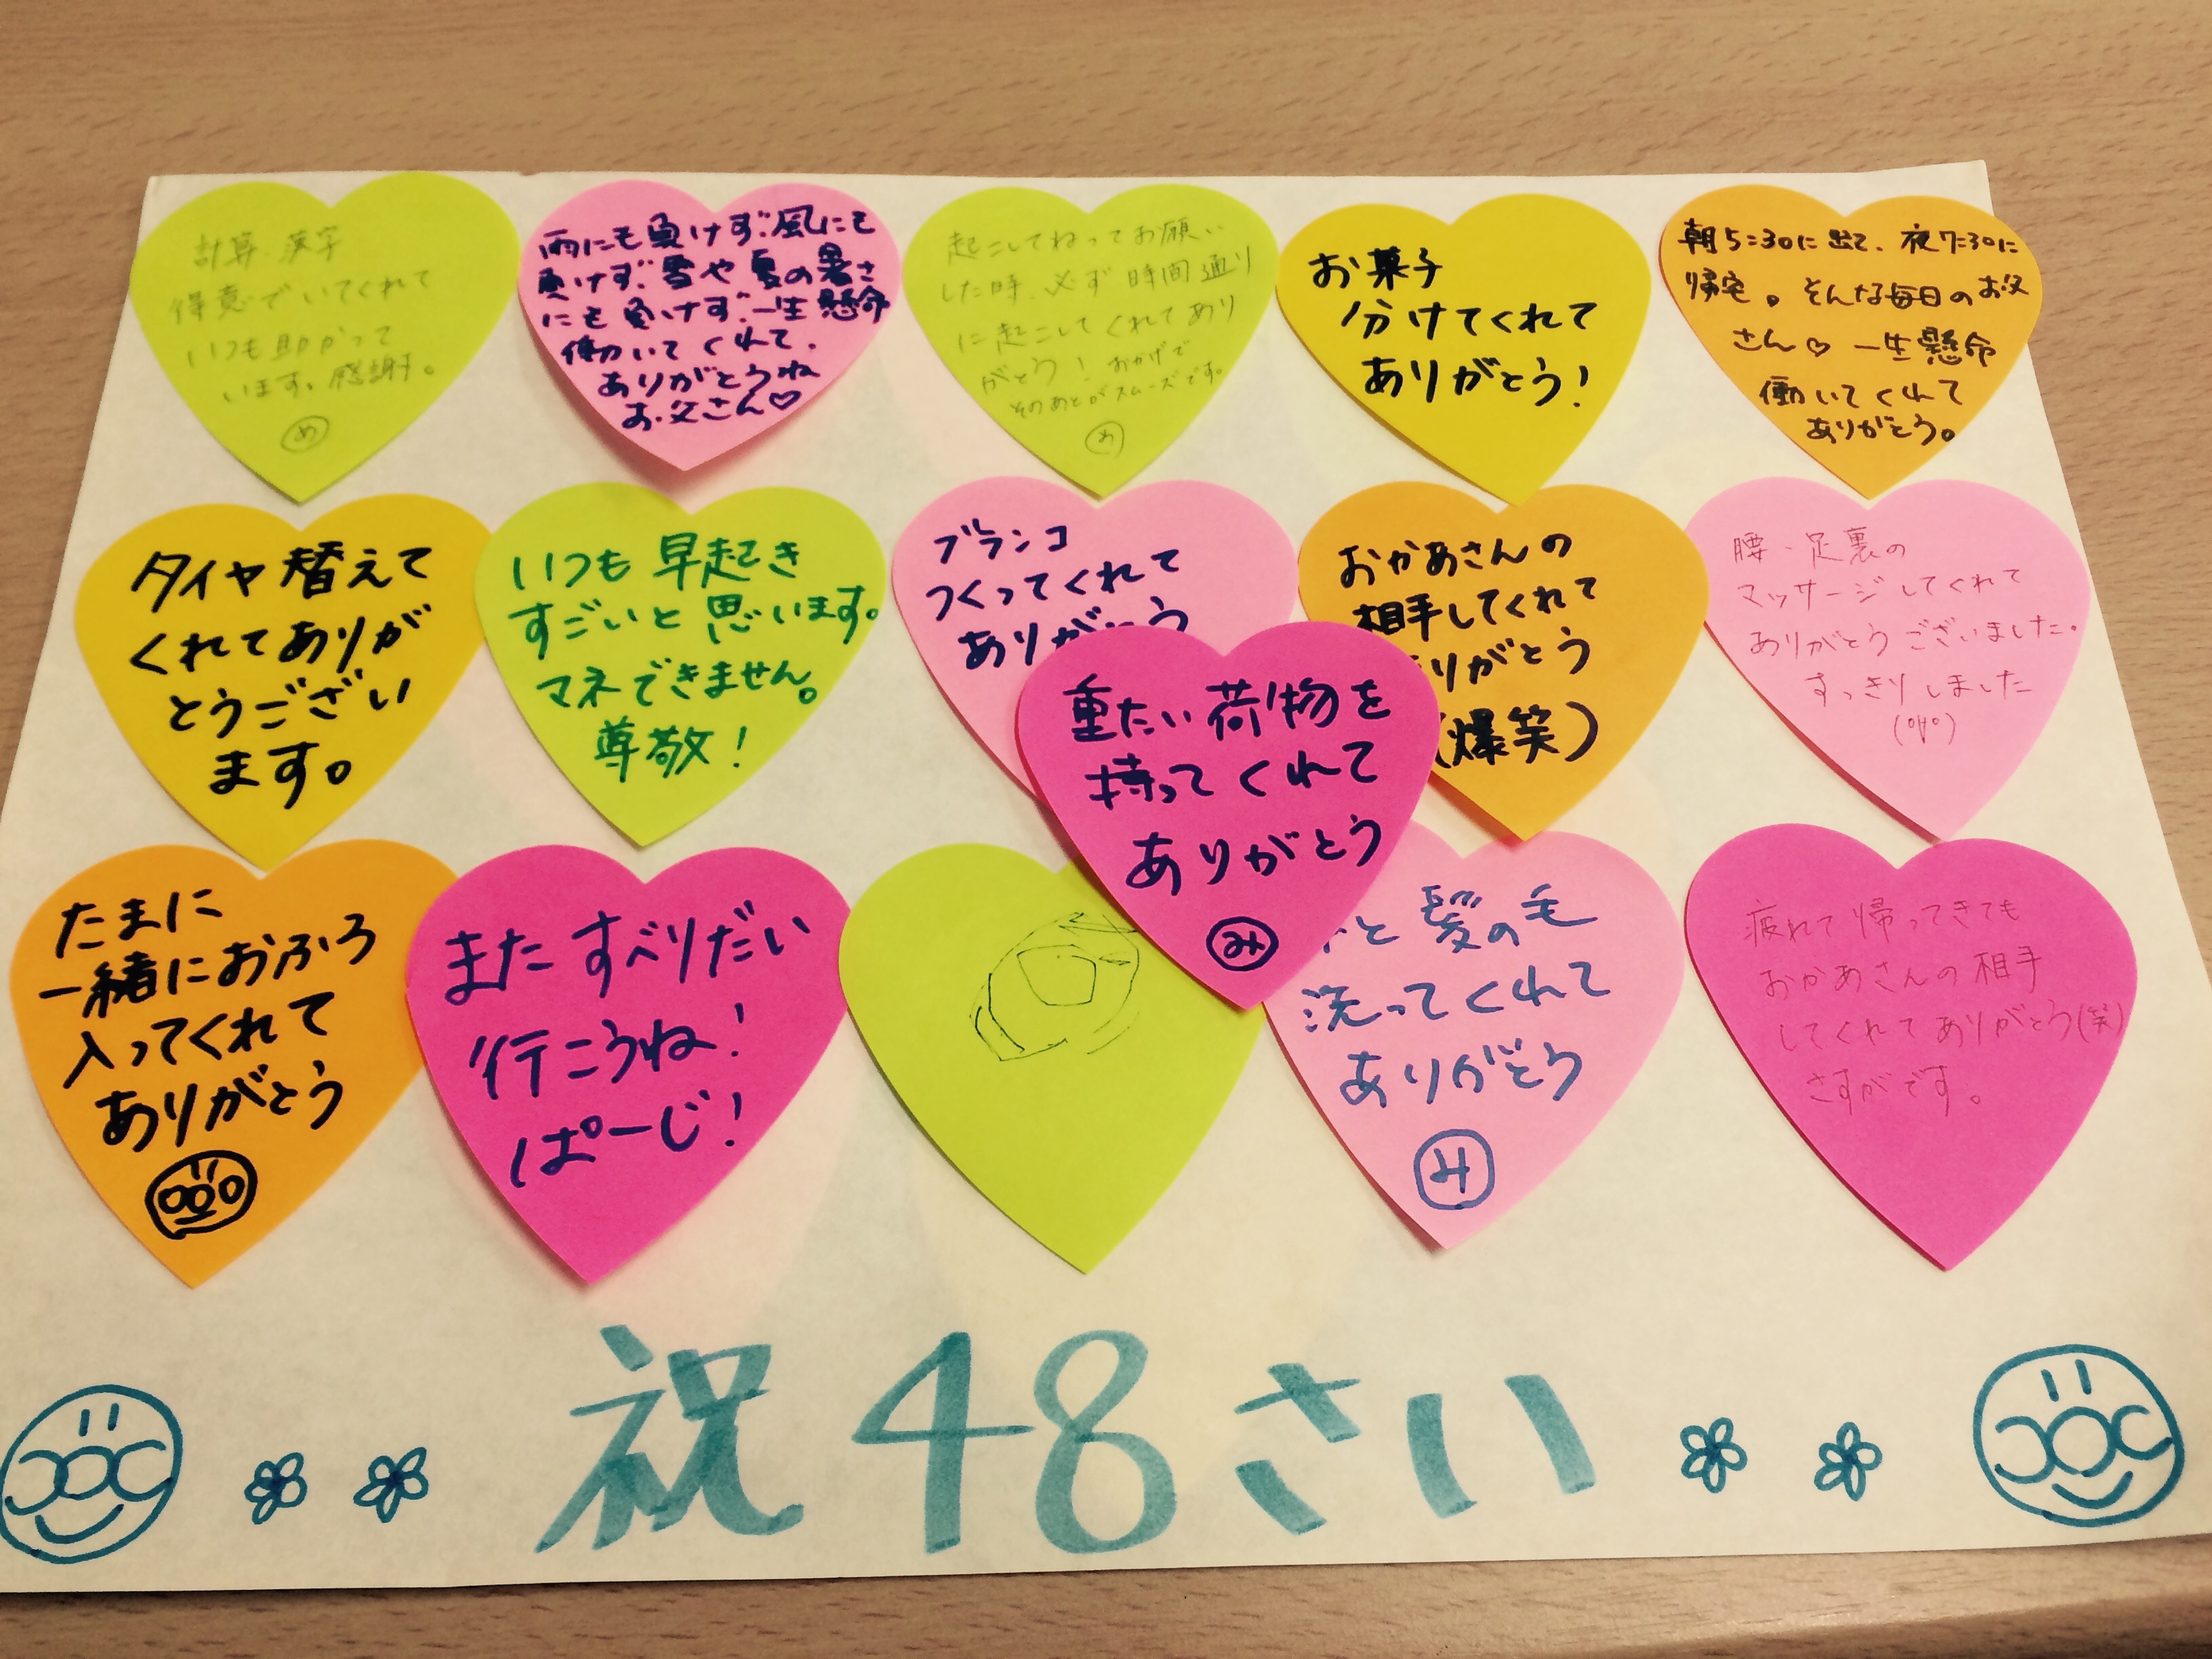 計算・漢字
得意でいてくれて
いつも助かって
います。感謝。
め
雨にも負けず、風にも
負けず、雪や夏の暑さ
にも負けず、一生懸命
働いてくれて、
ありがとうね
お父さん♡
起こしてねってお願い
した時、必ず時間通り
に起こしてくれてあり
がとう!おかげで
そのあとがスムーズです。
め
お菓子
分けてくれて
ありがとう!
朝5:30に出て、夜7:30に
帰宅。そんな毎日のお父
さん♡一生懸命
働いてくれて
ありがとう。
タイヤ替えて
くれてありが
とうござい
ます。
いつも早起き
すごいと思います。
マネできません。
尊敬!
ブランコ
つくってくれて
ありがとう
おかあさんの
相手してくれて
りがとう
(爆笑)
腰・足裏の
マッサージしてくれて
ありがとうございました。
すっきりしました
重たい荷物を
持ってくれて
ありがとう
み
たまに
一緒におふろ
入ってくれて
ありがとう
また すべりだい
行こうね!
ぱーじ!
と髪の毛
洗ってくれて
ありがとう
み
疲れて帰ってきても
おかあさんの相手
してくれてありがとう(笑)
さすがです。
祝48さい